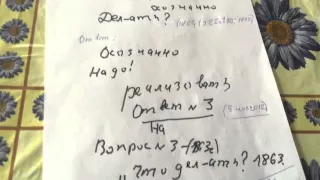 осознанно
Дел-ать?
Ответ:
Осознанно
Надо!
реализовать
Ответ N 3
На
Вопрос N 3-
"Что дел-ать? 1863